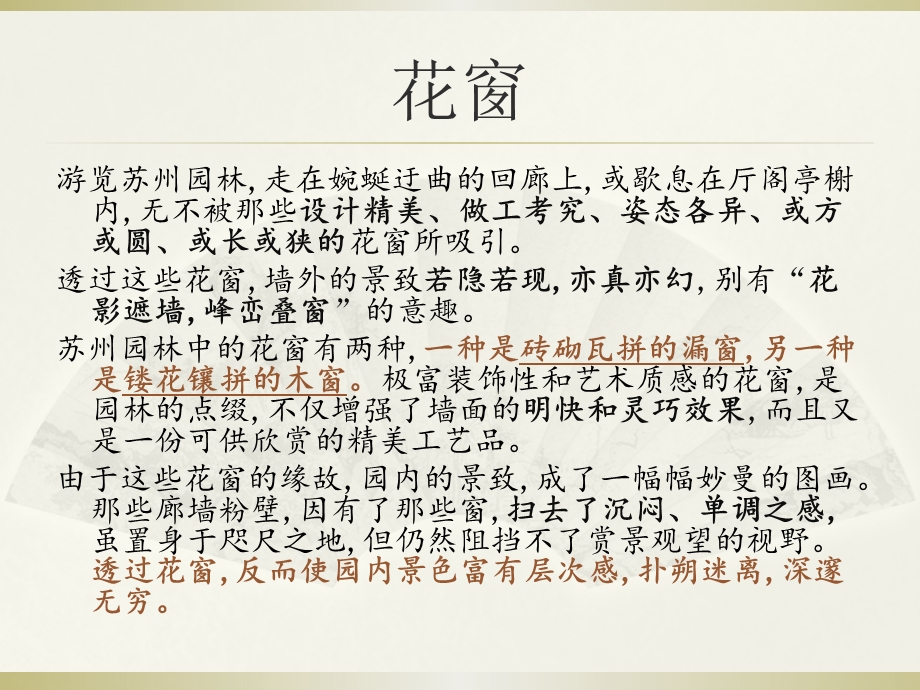 花窗
游览苏州园林,走在婉蜒迂曲的回廊上,或歇息在厅阁亭榭
内,无不被那些设计精美、做工考究、姿态各异、或方
或圆、或长或狭的花窗所吸引。
透过这些花窗,墙外的景致若隐若现,亦真亦幻,别有“花
影遮墙,峰峦叠窗”的意趣。
苏州园林中的花窗有两种,一种是砖砌瓦拼的漏窗,另一种
是镂花镶拼的木窗。极富装饰性和艺术质感的花窗,是
园林的点缀,不仅增强了墙面的明快和灵巧效果,而且又
是一份可供欣赏的精美工艺品。
由于这些花窗的缘故,园内的景致,成了一幅幅妙曼的图画。
那些廊墙粉壁,因有了那些窗,扫去了沉闷、单调之感,
虽置身于咫尺之地,但仍然阻挡不了赏景观望的视野。
透过花窗,反而使园内景色富有层次感,扑朔迷离,深邃
无穷。